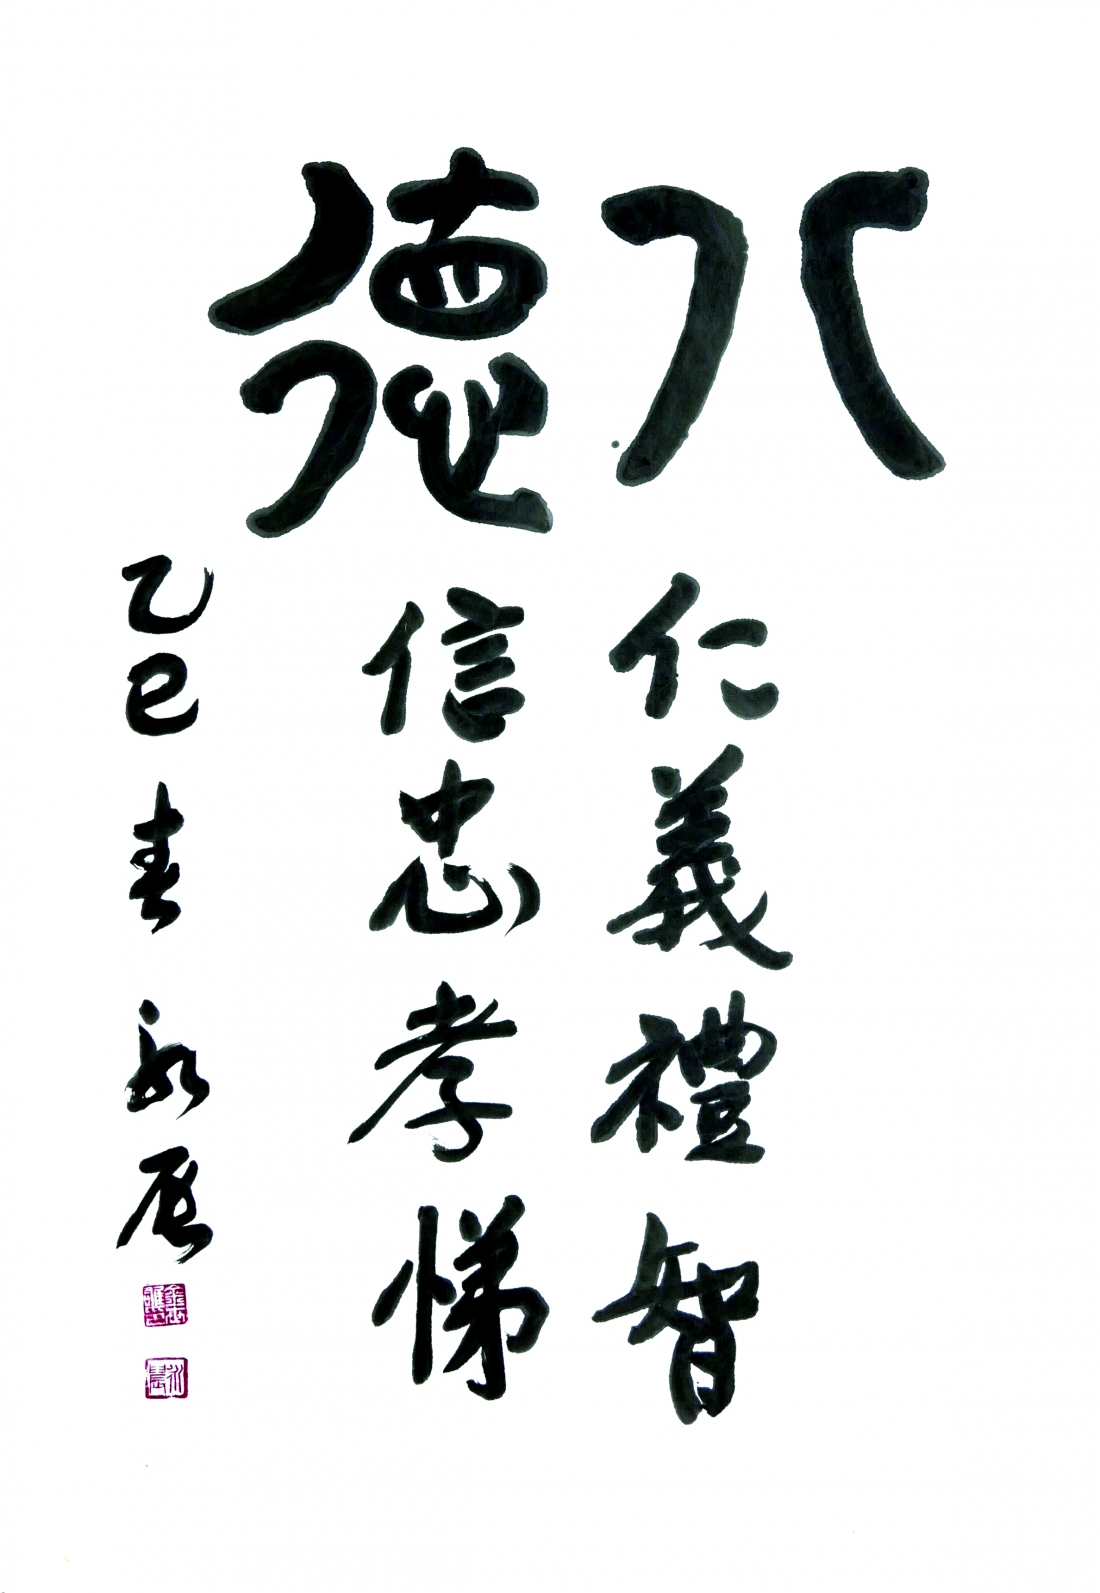 八德
仁義禮智
信忠孝悌
乙巳 春 永展